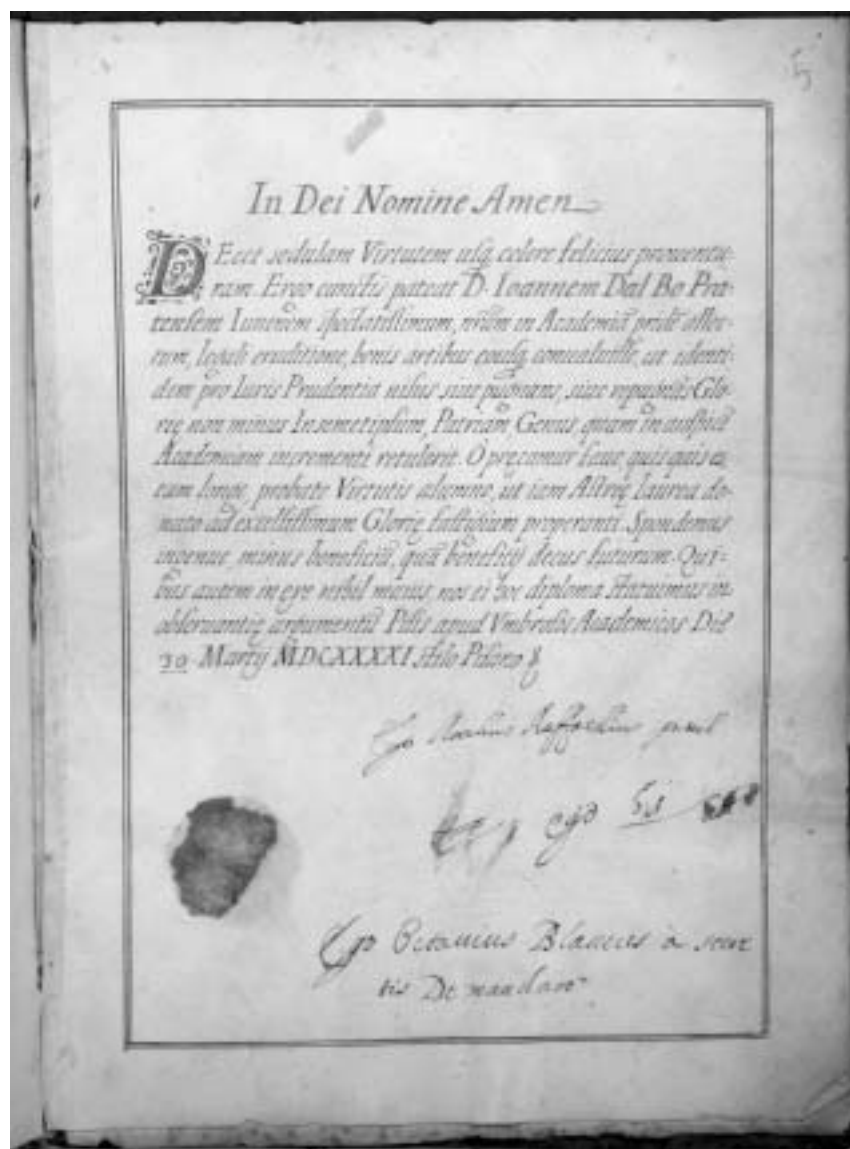 5
In Dei Nomine Amen
DEcet sedulam Virtutem usq; colere felicius prouentu-
ram. Ergo cunctis pateat D. Ioannem Dal Bo Pra-
tensem Iuuenem spectatissimum, in Academia pridē
legali eruditione, bonis artibus eousq; conualuisse, ut identi-
dem pro Iuris Prudentia nisus siue pugnans, siue repugnās Glo-
rię non minus Insemetipsum, Patriam, Genus, quam in
Academiam incrementi retulerit. O pręcamur faue, quisquis es
tam longe, probatę Virtutis alumno, ut iam Astrię laurea do-
nato ad excelsissimum Glorię fastigium properanti. Spondemus
ingenue, minus beneficiū, quā beneficij decus futurum. Qui-
bus autem in ęre nihil maius, nos ei hoc diploma statuimus in
obseruantię argumentū Pisis apud Vmbrosos Academicos Die
30 Martij MDCXXXXI stilo Pisano
Ego Raffaellius
ego
Ego Octauius Blancus à secre
tis De mandato